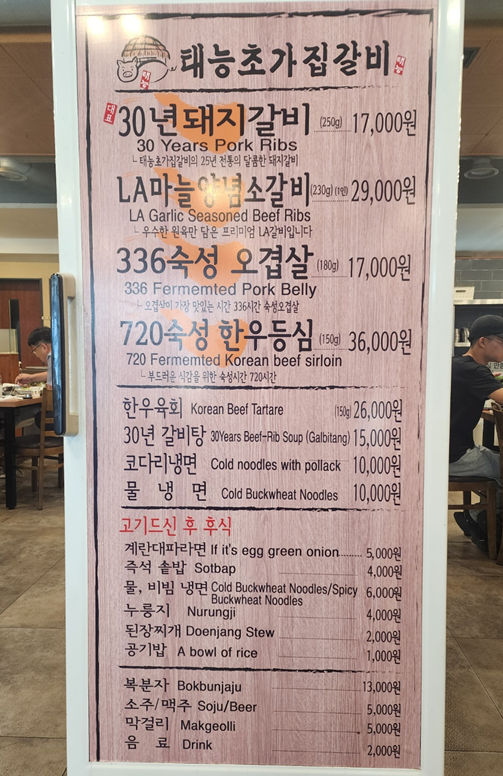 태능초가집갈비
대표 30년돼지갈비 (250g) 17,000원
30 Years Pork Ribs
ㄴ 태능초가집갈비의 25년 전통의 달콤한 돼지갈비
LA마늘양념소갈비 (230g) (1인) 29,000원
LA Garlic Seasoned Beef Ribs
ㄴ 우수한 원육만 담은 프리미엄 LA갈비입니다
336숙성 오겹살 (180g) 17,000원
336 Fermemted Pork Belly
ㄴ 오겹살이 가장 맛있는 시간 336시간 숙성오겹살
720숙성 한우등심 (150g) 36,000원
720 Fermemted Korean beef sirloin
ㄴ 부드러운 식감을 위한 숙성시간 720시간
한우육회 Korean Beef Tartare (150g) 26,000원
30년 갈비탕 30Years Beef-Rib Soup (Galbitang) 15,000원
코다리냉면 Cold noodles with pollack 10,000원
물 냉 면 Cold Buckwheat Noodles 10,000원
고기드신 후 후식
계란대파라면 If it's egg green onion........ 5,000원
즉석 솥밥 Sotbap 4,000원
물, 비빔 냉면 Cold Buckwheat Noodles/Spicy Buckwheat Noodles 6,000원
누룽지 Nurungji 4,000원
된장찌개 Doenjang Stew 2,000원
공기밥 A bowl of rice 1,000원
복분자 Bokbunjaju 13,000원
소주/맥주 Soju/Beer 5,000원
막걸리 Makgeolli 5,000원
음 료 Drink 2,000원